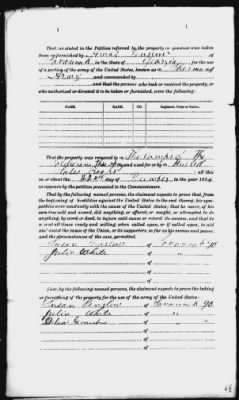 That, as stated in the Petition referred to, the property in question was taken
from or furnished by
in the State of Georgia for the
use of a portion of the army of the United States, known as Sherman's
Army and commanded by
and that the persons who took or received the property, or
who authorized or directed it to be taken or furnished, were the following:
NAME. NAME. Regiment, Corps or Station.
That the property was removed to The Camps of the
and used for or by
all this
on or about the 22nd day of December in the year 1864,
as appears by the petition presented to the Commissioners.
That by the following named persons, the claimant expects to prove that, from the
beginning of hostilities against the United States to the end thereof, his sym-
pathies were constantly with the cause of the United States; that he never, of his
own free will and accord, did anything, or offered, or sought, or attempted to do
anything, by word or deed, to injure said cause or retard its success, and that he
was at all times ready and willing, when called upon, or if called upon, to aid
and assist the cause of the Union, or its supporters, so far as his means and power,
and the circumstances of the case, permitted.
Susan of Savannah Ga
Julia White of "
of
of
of
of
Last, by the following named persons, the claimant expects to prove the taking
or furnishing of the property for the use of the army of the United States:
Susan of Savannah Ga
Julia White of "
of "
of
of